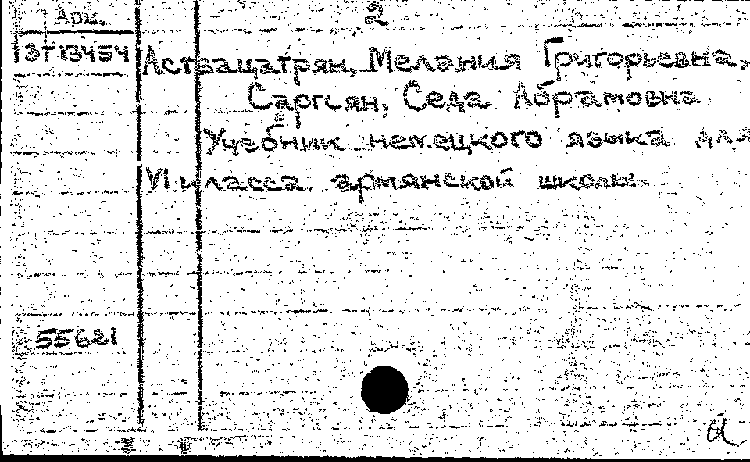 Арм. 2
ЭТ13454 Аствацатрян, Мелания Григорьевна,
Саргсян, Седа Абрамовна
Учебник немецкого языка для
VI класса армянской школы
55621